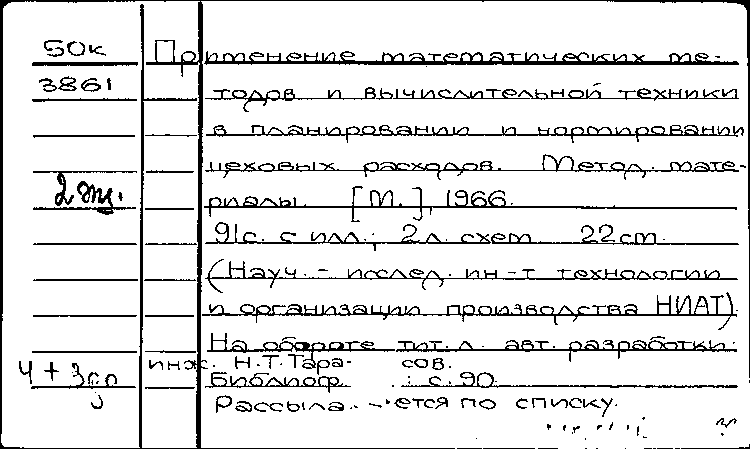 50к
3861
Применение математических ме-
тодов и вычислительной техники
в планировании и нормировании
цеховых расходов. Метод. мате-
риалы. [М.], 1966.
2 экз.
91с. с илл.; 2л. схем 22 cm.
(Науч.-исслед. ин-т технологии
и организации производства НИАТ)
На обороте тит. л. авт. разработки:
инж. Н.Т.Тара- сов.
Библиогр. : с.90
4 +
Рассыла- ется по списку.